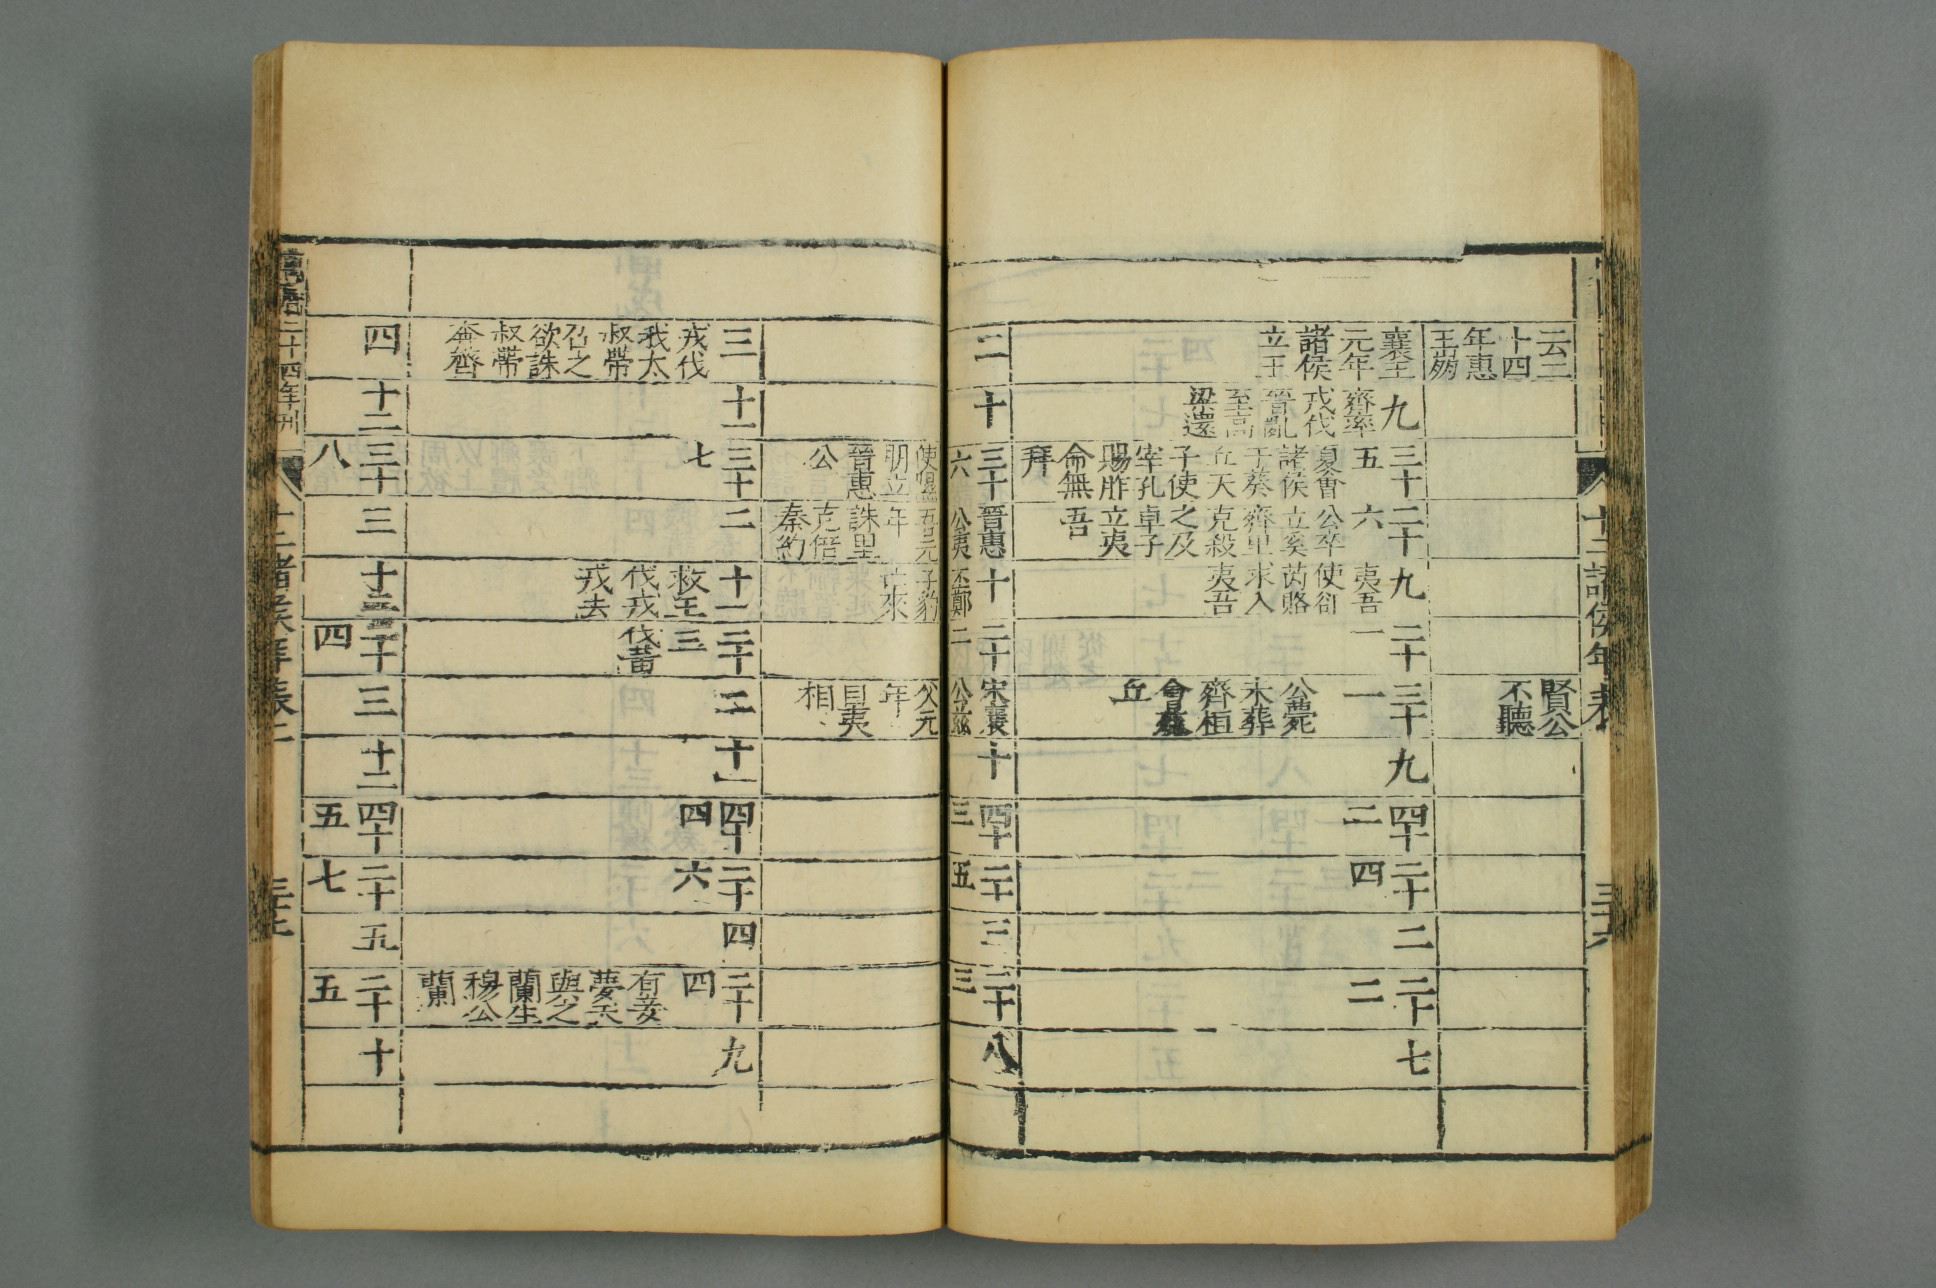 十二諸侯年表
三十六
云二十四年惠王崩
賢公不聽
襄王元年諸侯立王
九 齊率我伐晉亂至高梁還
三十五 夏會諸侯于葵丘天子使宰孔賜胙命無拜
二十六 公卒立奚齊里克殺之及卓子立夷吾
九 夷吾使郤芮賂求入夷吾
二十一
三十一 公薨未葬齊桓會葵丘
九
四十二
二十四
二
二十二
七
二
十
三十六 使隰朋立晉惠公
晉惠公夷吾元年誅里克倍秦約
十 丕鄭子豹亡來
二十二
宋襄公茲父元年目夷相
十
四十三
二十五
三
二十三
八
三 戎伐我太叔帶召之欲誅叔帶奔齊
十一
三十七
二
十一 救王伐戎戎去
二十三 伐黃
二
十一
四十四
二十六
四
二十四 有妾夢天與之蘭生穆公蘭
九
四
十二
三十八
三
十二
二十四
三
十二
四十五
二十七
五
二十五
十
萬曆二十四年刊
十二諸侯年表二